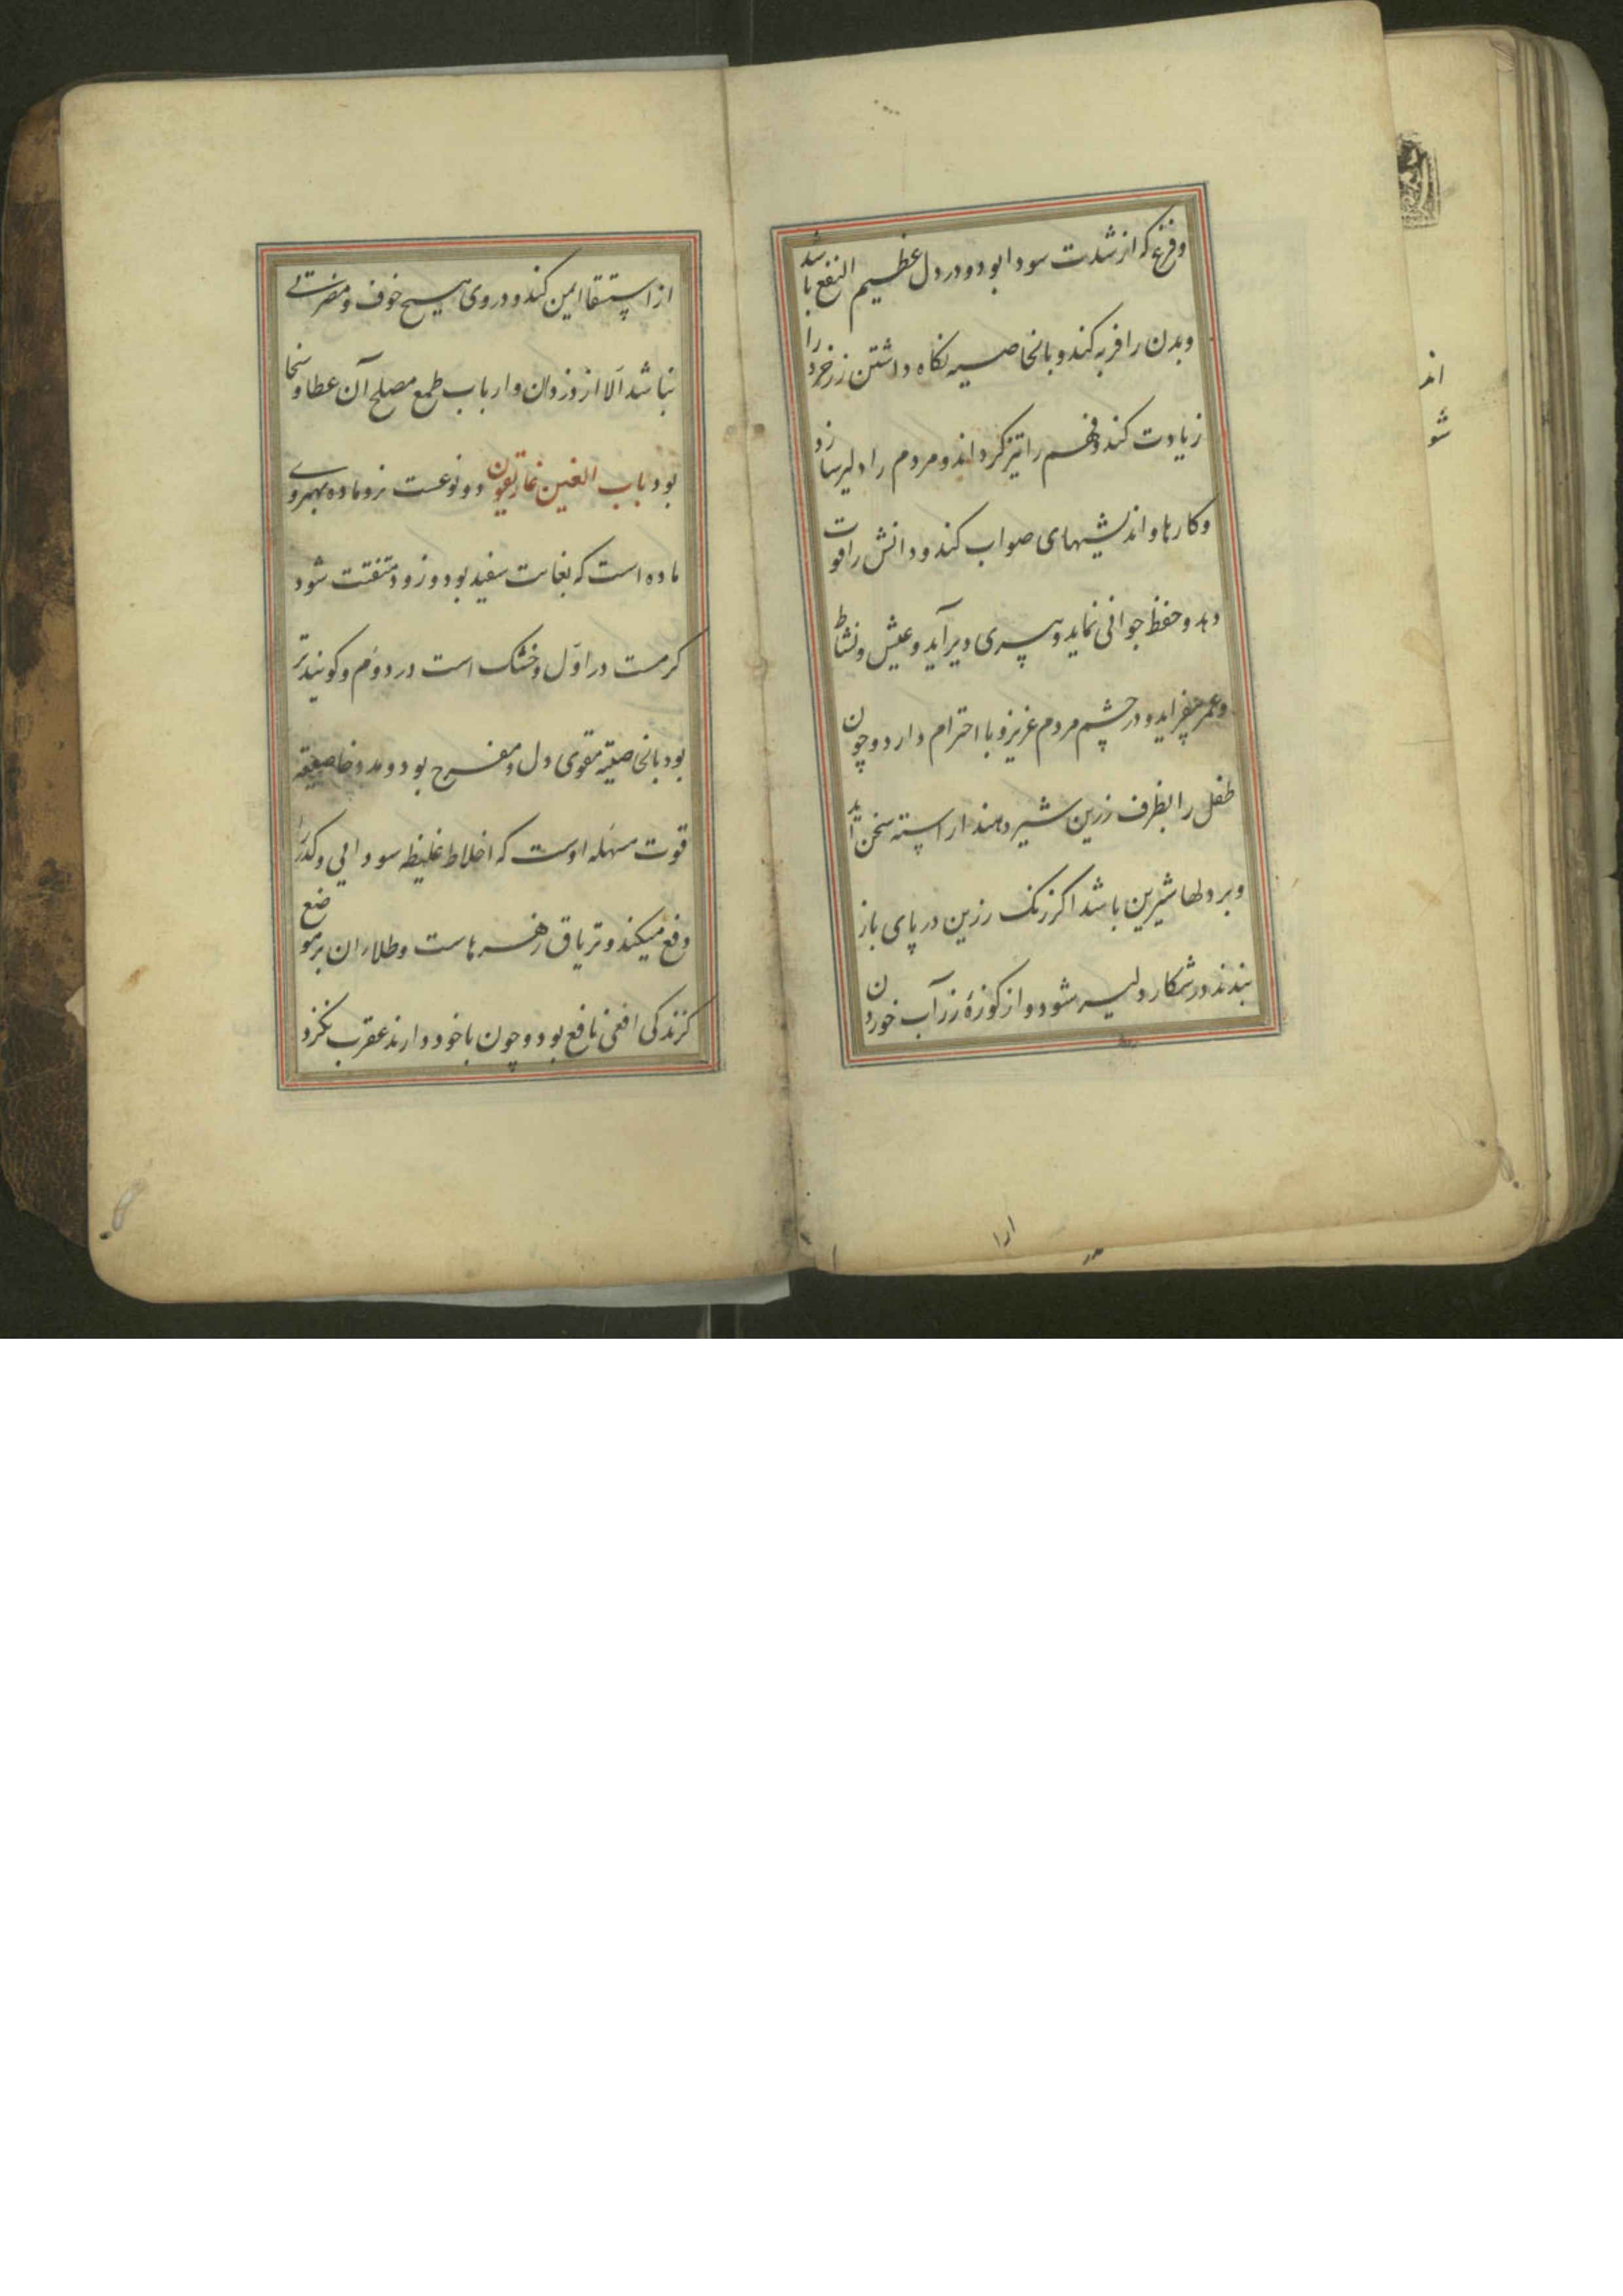 وفزع که از شدت سودا بود و درد دل عظیم النفع باشد
و بدن را فربه کند و بالخاصیه نکاه داشتن زر خرد را
زیادت کند و فهم را تیز کرداند و مردم را دلیر سازد
و کارها و اندیشیهای صواب کند و دانش را قوت
دهد و حفظ جوانی نماید و پیری دیر آید و عیش و نشاط
و عمر بیفزاید و در چشم مردم عزیز و با احترام دارد و چون
طفل را بظرف زرین شیر دهند اراسته سخن آید
و بر دلها شیرین باشد اکر زنک زرین در پای باز
بندند در شکار دلیر شود و از کوزهٔ زر آب خوردن
از استسقا ایمن کند و در وی هیچ خوف و مضرتی
نباشد الا از دزدان و ارباب طمع مصلح آن عطا و سخا
بود باب الغین غاریقون دو نوعست نر و ماده بهروی
ماده است که بغایت سفید بود و زود متفتت شود
کرمست در اوّل و خشک است در دوّم و کویند تر
بود بالخاصیته مقوی دل و مفرح بود و مدد خاصیته
قوت مسهله اوست که اخلاط غلیظه سودایی و کدر را
دفع میکند و تریاق زهرهاست و طلاء ان بر موضع
کزندکی افعی نافع بود و چون با خود دارند عقرب نکزد
اند
شو